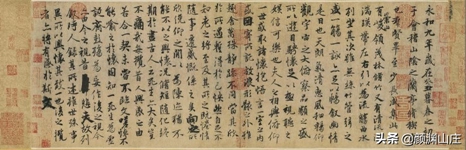 永和九年歲在癸丑暮春之初會
于會稽山陰之蘭亭脩禊事
也羣賢畢至少長咸集此地
有崇山峻領茂林脩竹又有清流激
湍暎帶左右引以為流觴曲水
列坐其次雖無絲竹管弦之
盛一觴一詠亦足以暢敘幽情
是日也天朗氣清惠風和暢仰
觀宇宙之大俯察品類之盛
所以遊目騁懷足以極視聽之
娛信可樂也夫人之相與俯仰
一世或取諸懷抱悟言一室之內
或因寄所託放浪形骸之外雖
趣舍萬殊靜躁不同當其欣
於所遇蹔得於己怏然自足不
知老之將至及其所之既惓情
隨事遷感慨係之矣向之所
欣俛仰之閒以為陳迹猶不
能不以之興懷況脩短隨化終
期於盡古人云死生亦大矣豈
不痛哉每攬昔人興感之由
若合一契未嘗不臨文嗟悼不
能喻之於懷固知一死生為虛
誕齊彭殤為妄作後之視今
亦由今之視昔悲夫故列
敘時人錄其所述雖世殊事
異所以興懷其致一也後之攬
者亦將有感於斯文
头条 @颜鹏山庄